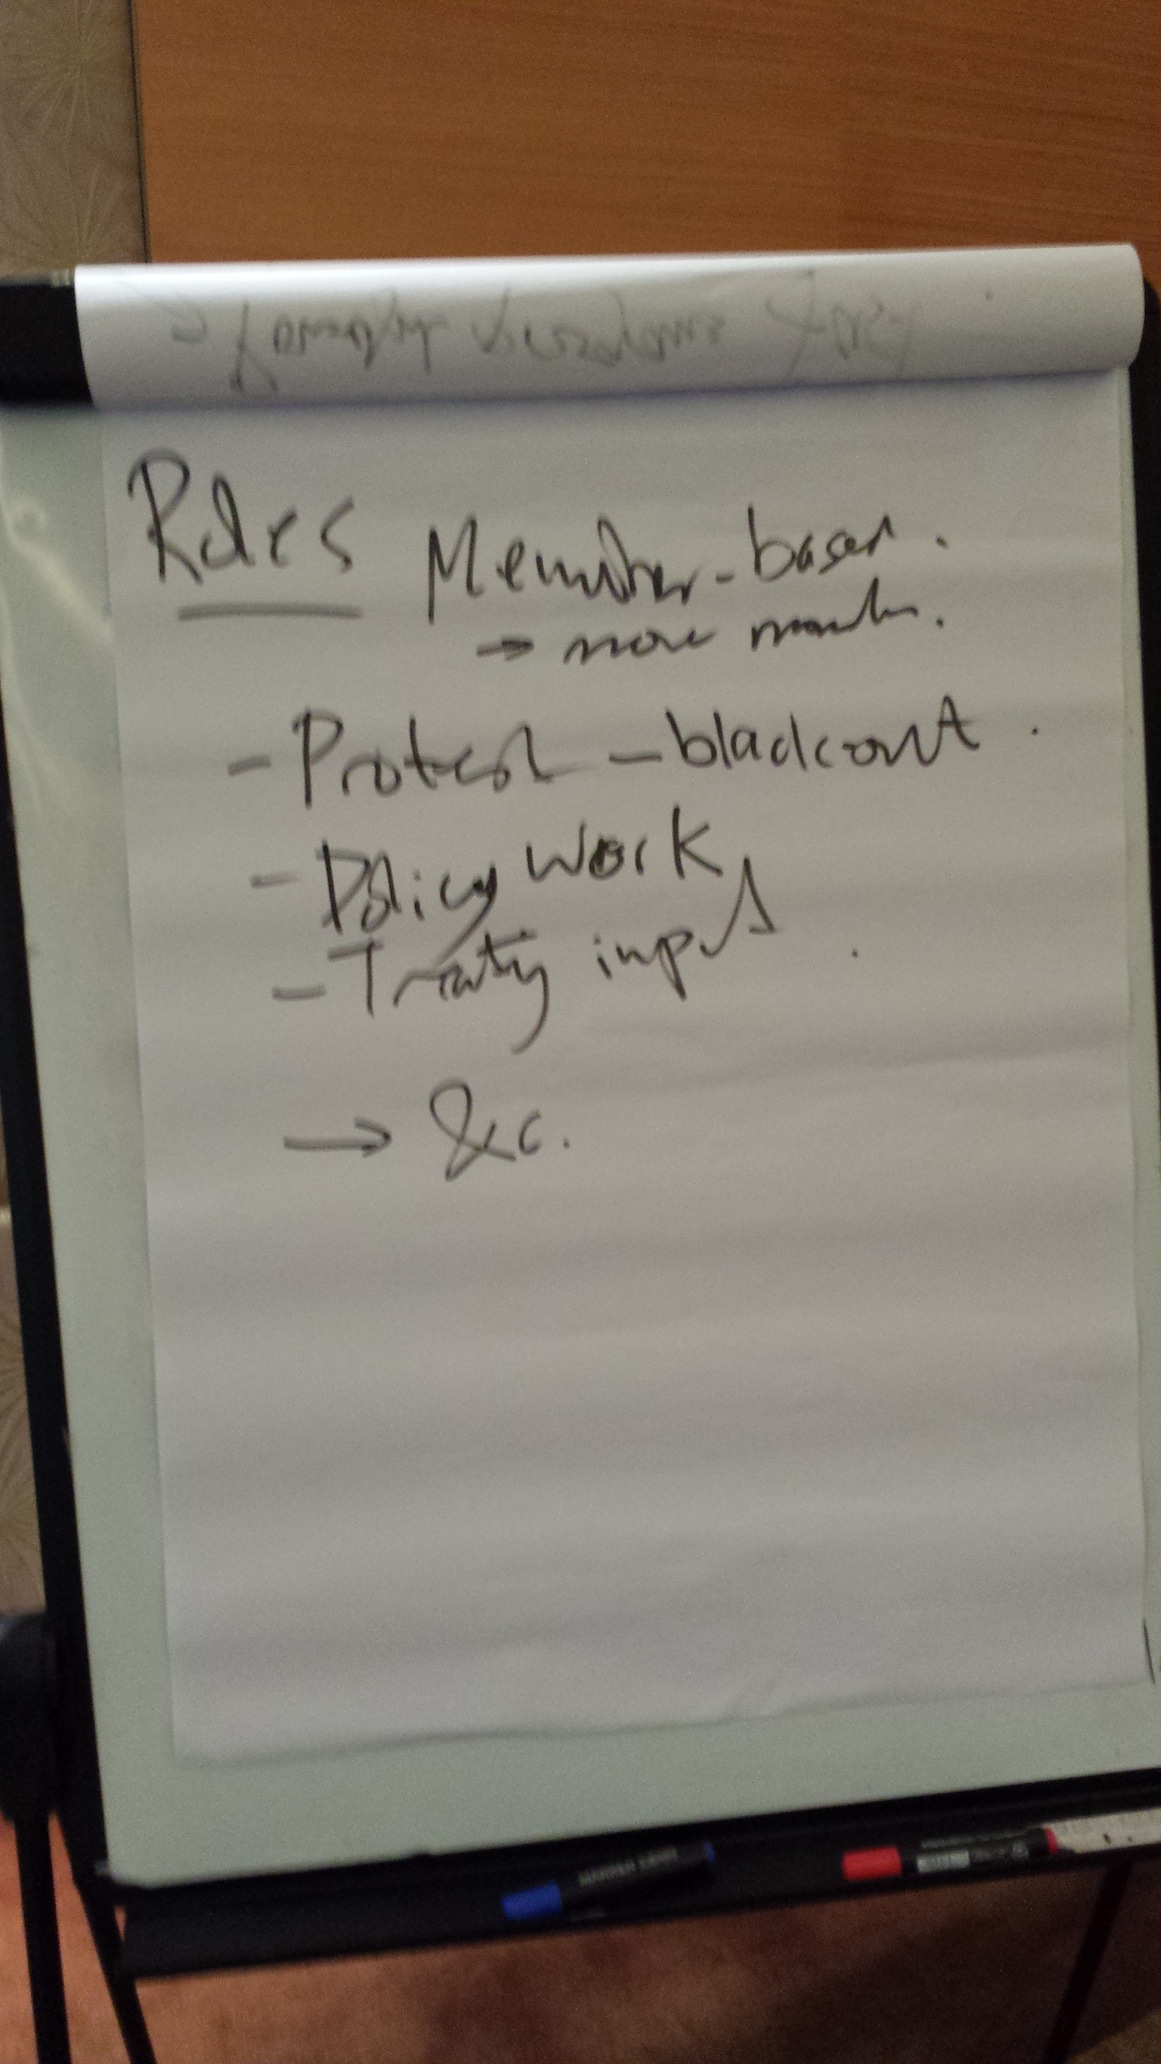 Roles Member-based.
→ more
- Protest - blackout.
- Policy work
- Treaty input
→ &c.